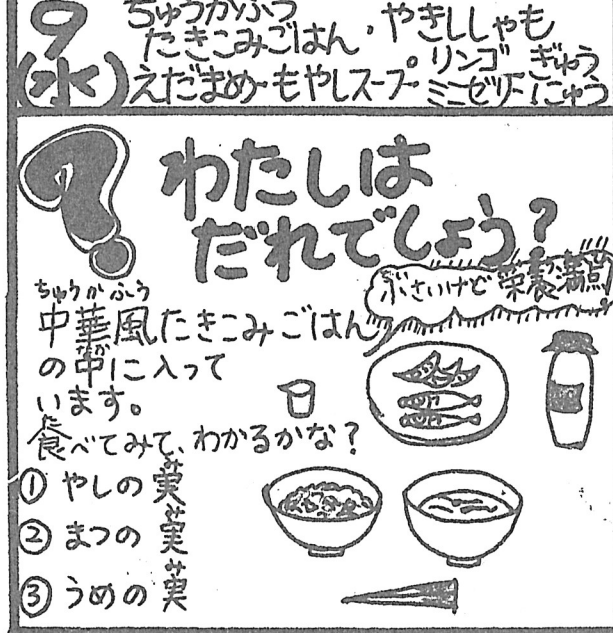 9
(水)
ちゅうかふう
たきこみごはん・やきししゃも
えだまめ・もやしスープ
リンゴ
ミニゼリー
ぎゅう
にゅう
?
わたしは
だれでしょう?
小さいけど栄養満点
ちゅうかふう
中華風たきこみごはん
なか
の中に入って
います。
た
食べてみて、わかるかな?
み
① やしの実
み
② まつの実
み
③ うめの実